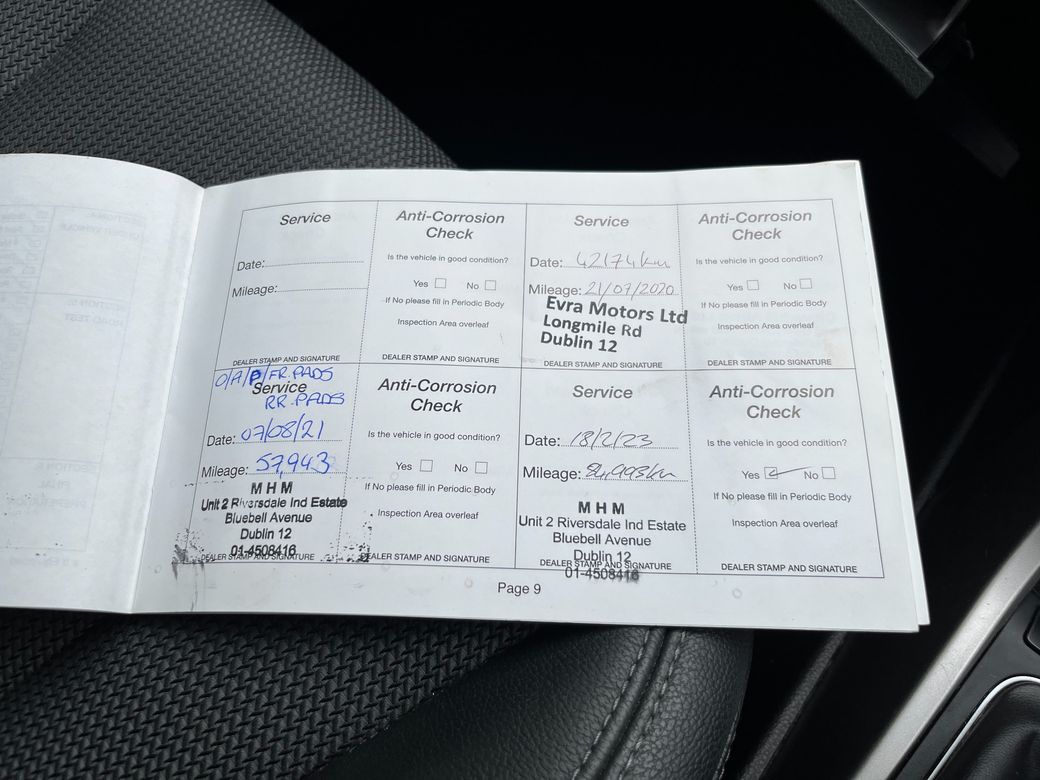 Service
Date:
Mileage:
DEALER STAMP AND SIGNATURE
Anti-Corrosion
Check
Is the vehicle in good condition?
Yes No
If No please fill in Periodic Body
Inspection Area overleaf
DEALER STAMP AND SIGNATURE
Service
Date: 42174km
Mileage: 21/07/2020
Evra Motors Ltd
Longmile Rd
Dublin 12
DEALER STAMP AND SIGNATURE
Anti-Corrosion
Check
Is the vehicle in good condition?
Yes No
If No please fill in Periodic Body
Inspection Area overleaf
DEALER STAMP AND SIGNATURE
O/A/P/FR.PADS
Service
RR.PADS
Date: 07/08/21
Mileage: 57,943
M H M
Unit 2 Riversdale Ind Estate
Bluebell Avenue
Dublin 12
01-4508416
DEALER STAMP AND SIGNATURE
Anti-Corrosion
Check
Is the vehicle in good condition?
Yes No
If No please fill in Periodic Body
Inspection Area overleaf
DEALER STAMP AND SIGNATURE
Service
Date: 18/2/23
Mileage: 84,993km
M H M
Unit 2 Riversdale Ind Estate
Bluebell Avenue
Dublin 12
DEALER STAMP AND SIGNATURE
01-4508416
Anti-Corrosion
Check
Is the vehicle in good condition?
Yes No
If No please fill in Periodic Body
Inspection Area overleaf
DEALER STAMP AND SIGNATURE
Page 9